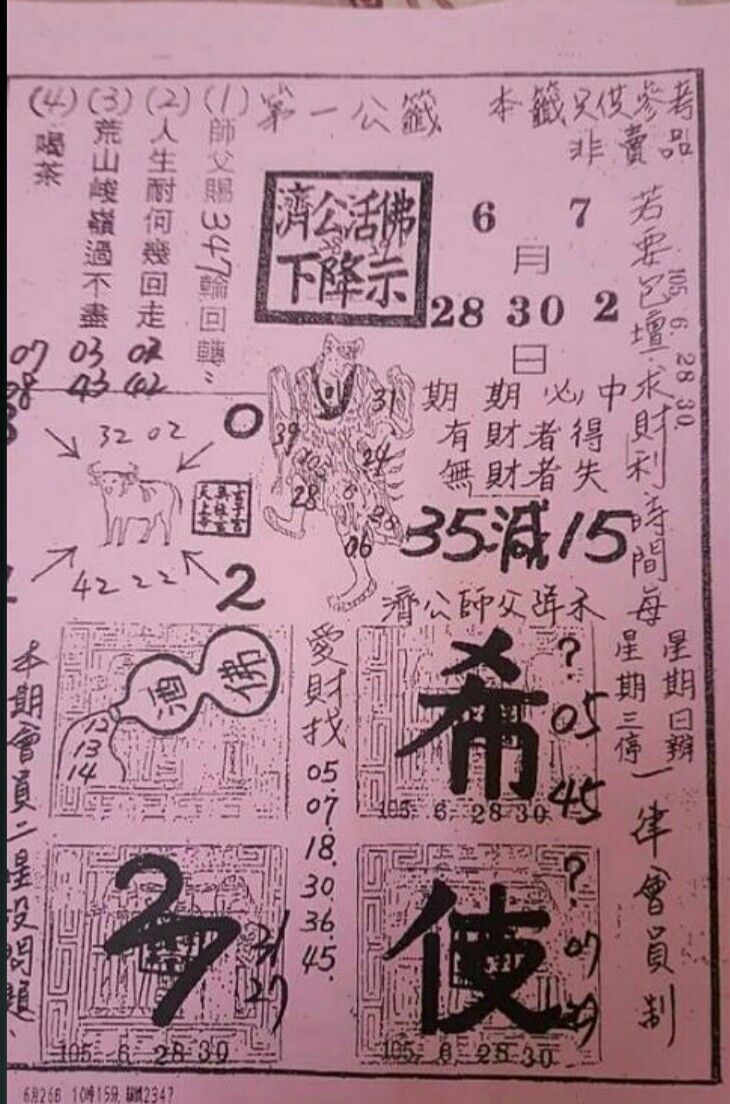 本籤只供參考
非賣品
第一公籤
(1) 師父賜347輪回轉
(2) 人生耐何幾回走
(3) 荒山峻嶺過不盡
(4) 喝茶
濟公活佛
下降示
6 7
月
28 30 2
日
若要包壇求財利時間每
105 6. 28 30
星期日辦
星期三停
一律會員制
07 03 02
08 43 42
期期必中
有財者得
無財者失
35減15
32 02
0
42 22
2
31
39
24
28
06
濟公師父
愛財找
05.
07.
18.
30.
36.
45.
佛
酒
12
13
14
希
?
05
45
105 6 28 30
31
27
105 6 28 30
使
?
07
105 6 28 30
本期會員二星沒問題
6月26日 10時15分
2347